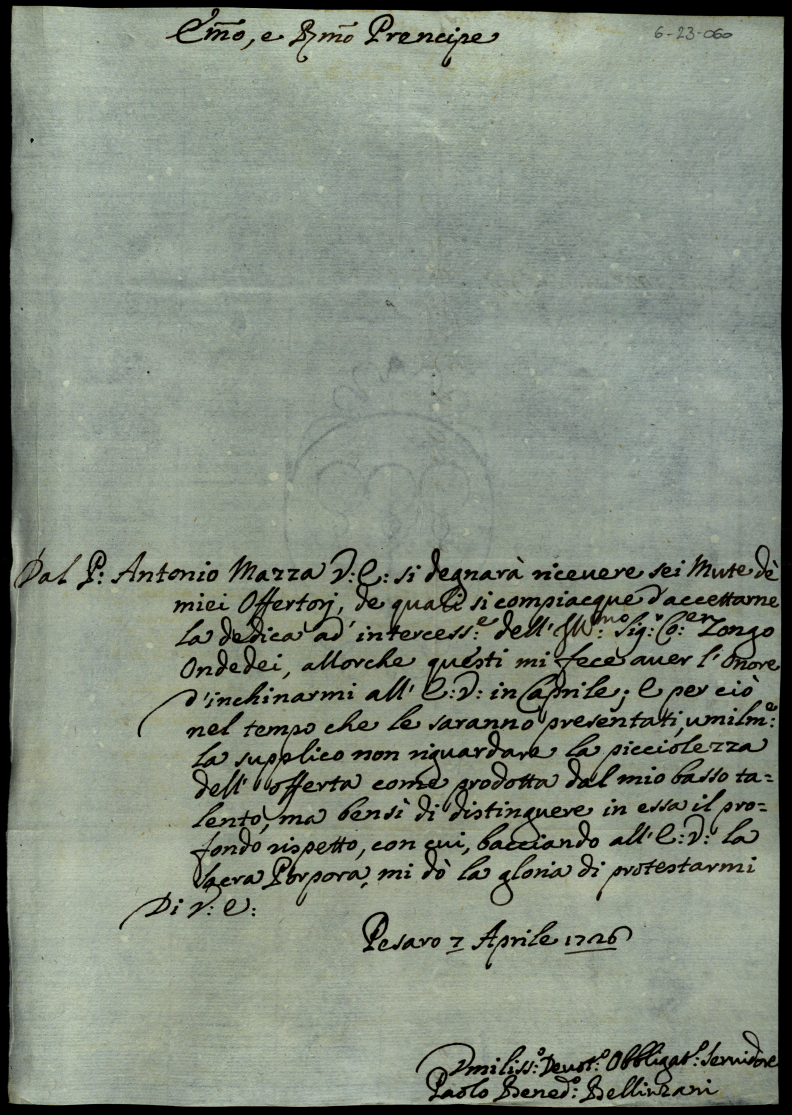 Em̃o, e Rm̃o Prencipe
6-23-060
Dal P: Antonio Mazza V:E: si degnarà riceuere sei Mute dè
miei Offertorj, de quali si compiacque d'accettarne
la dedica ad' intercess:e dell' Ill:mo Sig:r Co:
Ondedei, allorche questi mi fece auer l'onore
d'inchinarmi all' E:V: in Caprile; E per ciò
nel tempo che le saranno presentati, umilm:e
la supplico non riguardare la picciolezza
dell' offerta come prodotta dal mio basso ta=
lento, ma bensì di distinguere in essa il pro=
fondo rispetto, con cui, bacciando all' E:V: la
sacra Porpora, mi dò la gloria di protestarmi
Di V:E:
Pesaro 7 Aprile 1726
Vmiliss:o Deuot:o Obbligat:o Seruidore
Paolo Bened:o Bellinzani